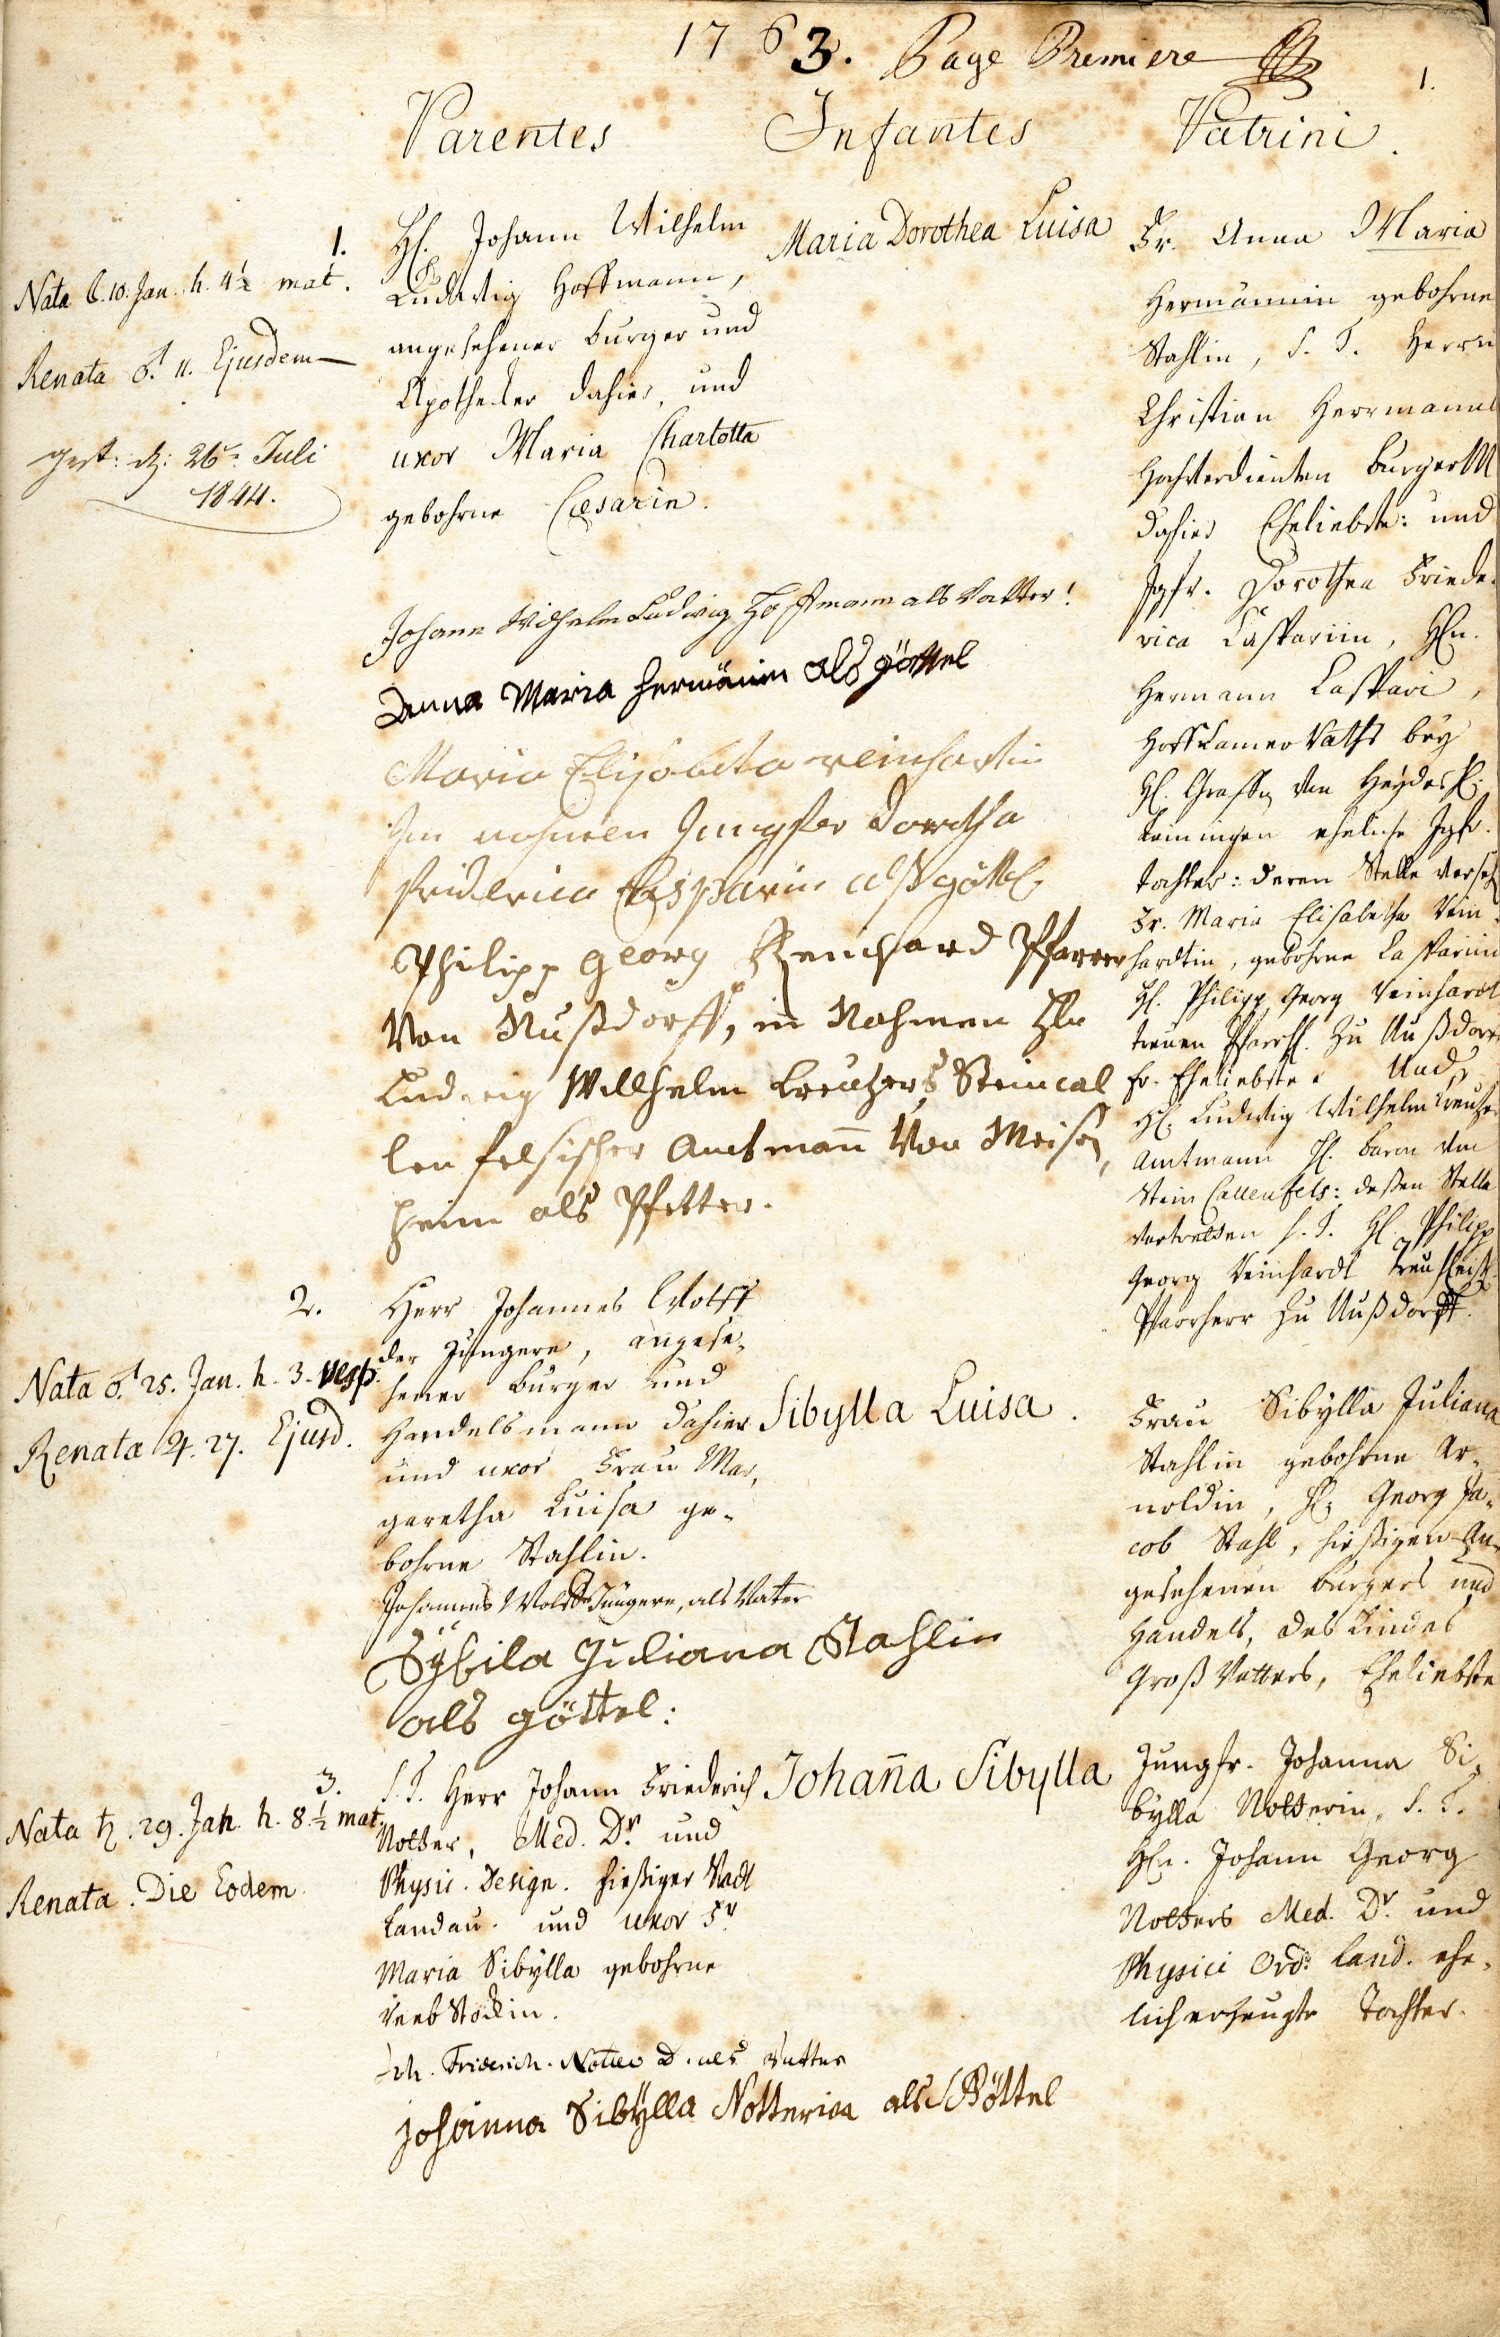 1763. Page Premiere
1.
Parentes Infantes Patrini.
1.
Nata 10. Jan. h. 4½ mat.
Renata ♂. 11. Ejusdem
gest: 26. Juli
1844.
H. Johann Wilhelm
Ludwig Hoffmann,
angesehener burger und
Apothecker dahier, und
uxor Maria Charlotta
gebohrne Cæsarin.
Maria Dorothea Luisa
Fr. Anna Maria
Hermännin gebohrne
Stahlin, S. T. Herrn
Christian Herrmanns
Hochverdienten burgerM
dahier Eheliebste: und
Jgfr. Dorothea Friede-
rica Casparin, Hn.
Hermann Caspari,
Hoff Camer Raths bey
H. Graffen von
Leiningen eheliche Jgfr.
tochter: deren Stelle
Fr. Maria Elisabetha Rein-
hardtin, gebohrne Casparin
H. Philipp Georg Reinhardt
treuen Pfarrh. zu Nußdorff
Eheliebste. Und
H. Ludwig Wilhelm Creutzer
Amtmann H. baron von
Stein Callenfels: deßen Stelle
vertretten S. T. H. Philipp
Georg Reinhardt
Pfarrherr zu Nußdorff.
Johann Wilhelm Ludwig Hoffmann als Vatter!
Anna Maria Hermänin als göttel
Maria Elisabeta reinhartin
Im nahmen Jungfer dorthea
friderica Casparin alß göttel
Philipp Georg Reinhard Pfarrer
Von Nußdorff, in Nahmen Hln
Ludwig Willhelm Creutzers Steincal
len felsischer Amtmann Von Meisen,
heim als Pfetter.
2.
Nata ♂. 25. Jan. h. 3. vesp.
Renata ♃. 27. Ejusd.
Herr Johannes Wolff
der Jüngere, angese-
hener burger und
Handelsmann dahier
und uxor Frau Mar,
garetha Luisa ge-
bohrne Stahlin.
Sibylla Luisa.
Frau Sibylla Juliana
Stahlin gebohrne Ar-
noldin, H. Georg Ja-
cob Stahl, hießigen An-
gesehenen burgers und
Handels, des Kindes
Groß Vatters, Eheliebste
Johannes Wolff Jüngere, als Vater
Sÿbila Juliana Stahlin
als göttel:
3.
Nata ♄. 29. Jan. h. 8.½ mat.
Renata. Die Eodem.
S. T. Herr Johann Friederich
Notter, Med. Dr. und
Physic. Design. hießiger Stadt
Landau. und uxor Fr.
Maria Sibylla gebohrne
Rebstöckin.
Johaña Sibylla
Jungfr. Johanna Si-
bylla Notterin, S. T.
Hln. Johann Georg
Notters Med. Dr. und
Physici Ord: Land. ehe-
lich erzeugte Tochter.
Joh. Friderich. Notter D. als Vatter
Johanna Sibÿlla Notterin als Göttel